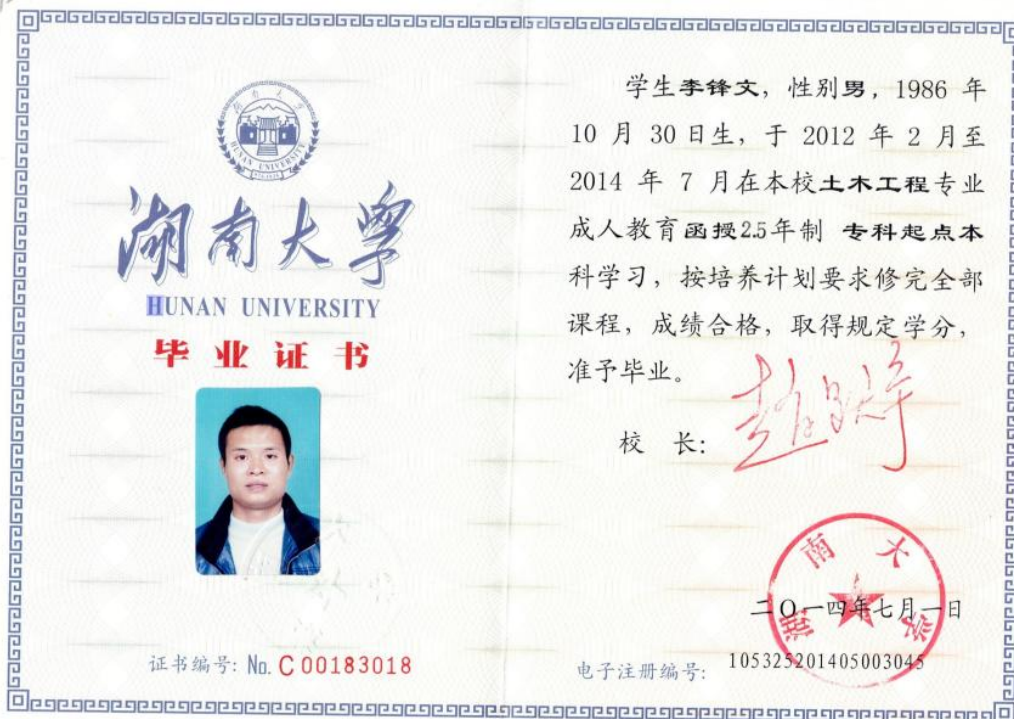 湖南大学
HUNAN UNIVERSITY
湖南大学
HUNAN UNIVERSITY
毕业证书
证书编号: No. C 00183018
学生李锋文，性别男，1986 年
10 月 30 日生，于 2012 年 2 月至
2014 年 7 月在本校土木工程专业
成人教育函授2.5年制 专科起点本
科学习，按培养计划要求修完全部
课程，成绩合格，取得规定学分，
准予毕业。
校 长:
湖南大学
二〇一四年七月一日
电子注册编号: 105325201405003045